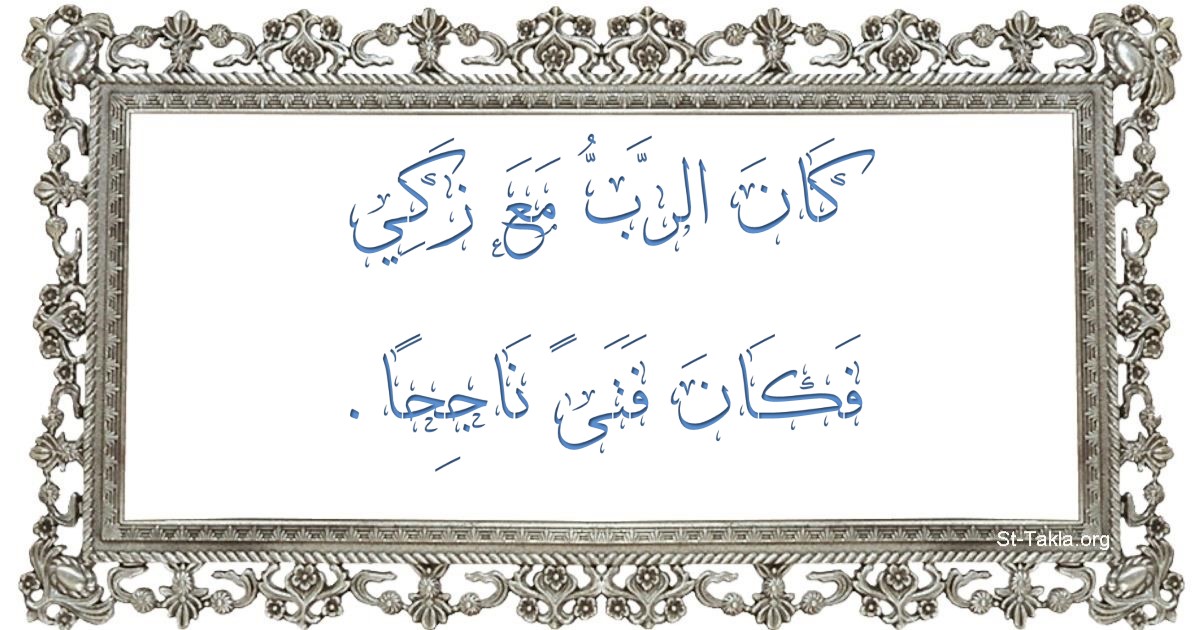 كَانَ الرَّبُّ مَعَ زَكَِي
فَكَانَ فَتَىً نَاجِحًا .
St-Takla.org